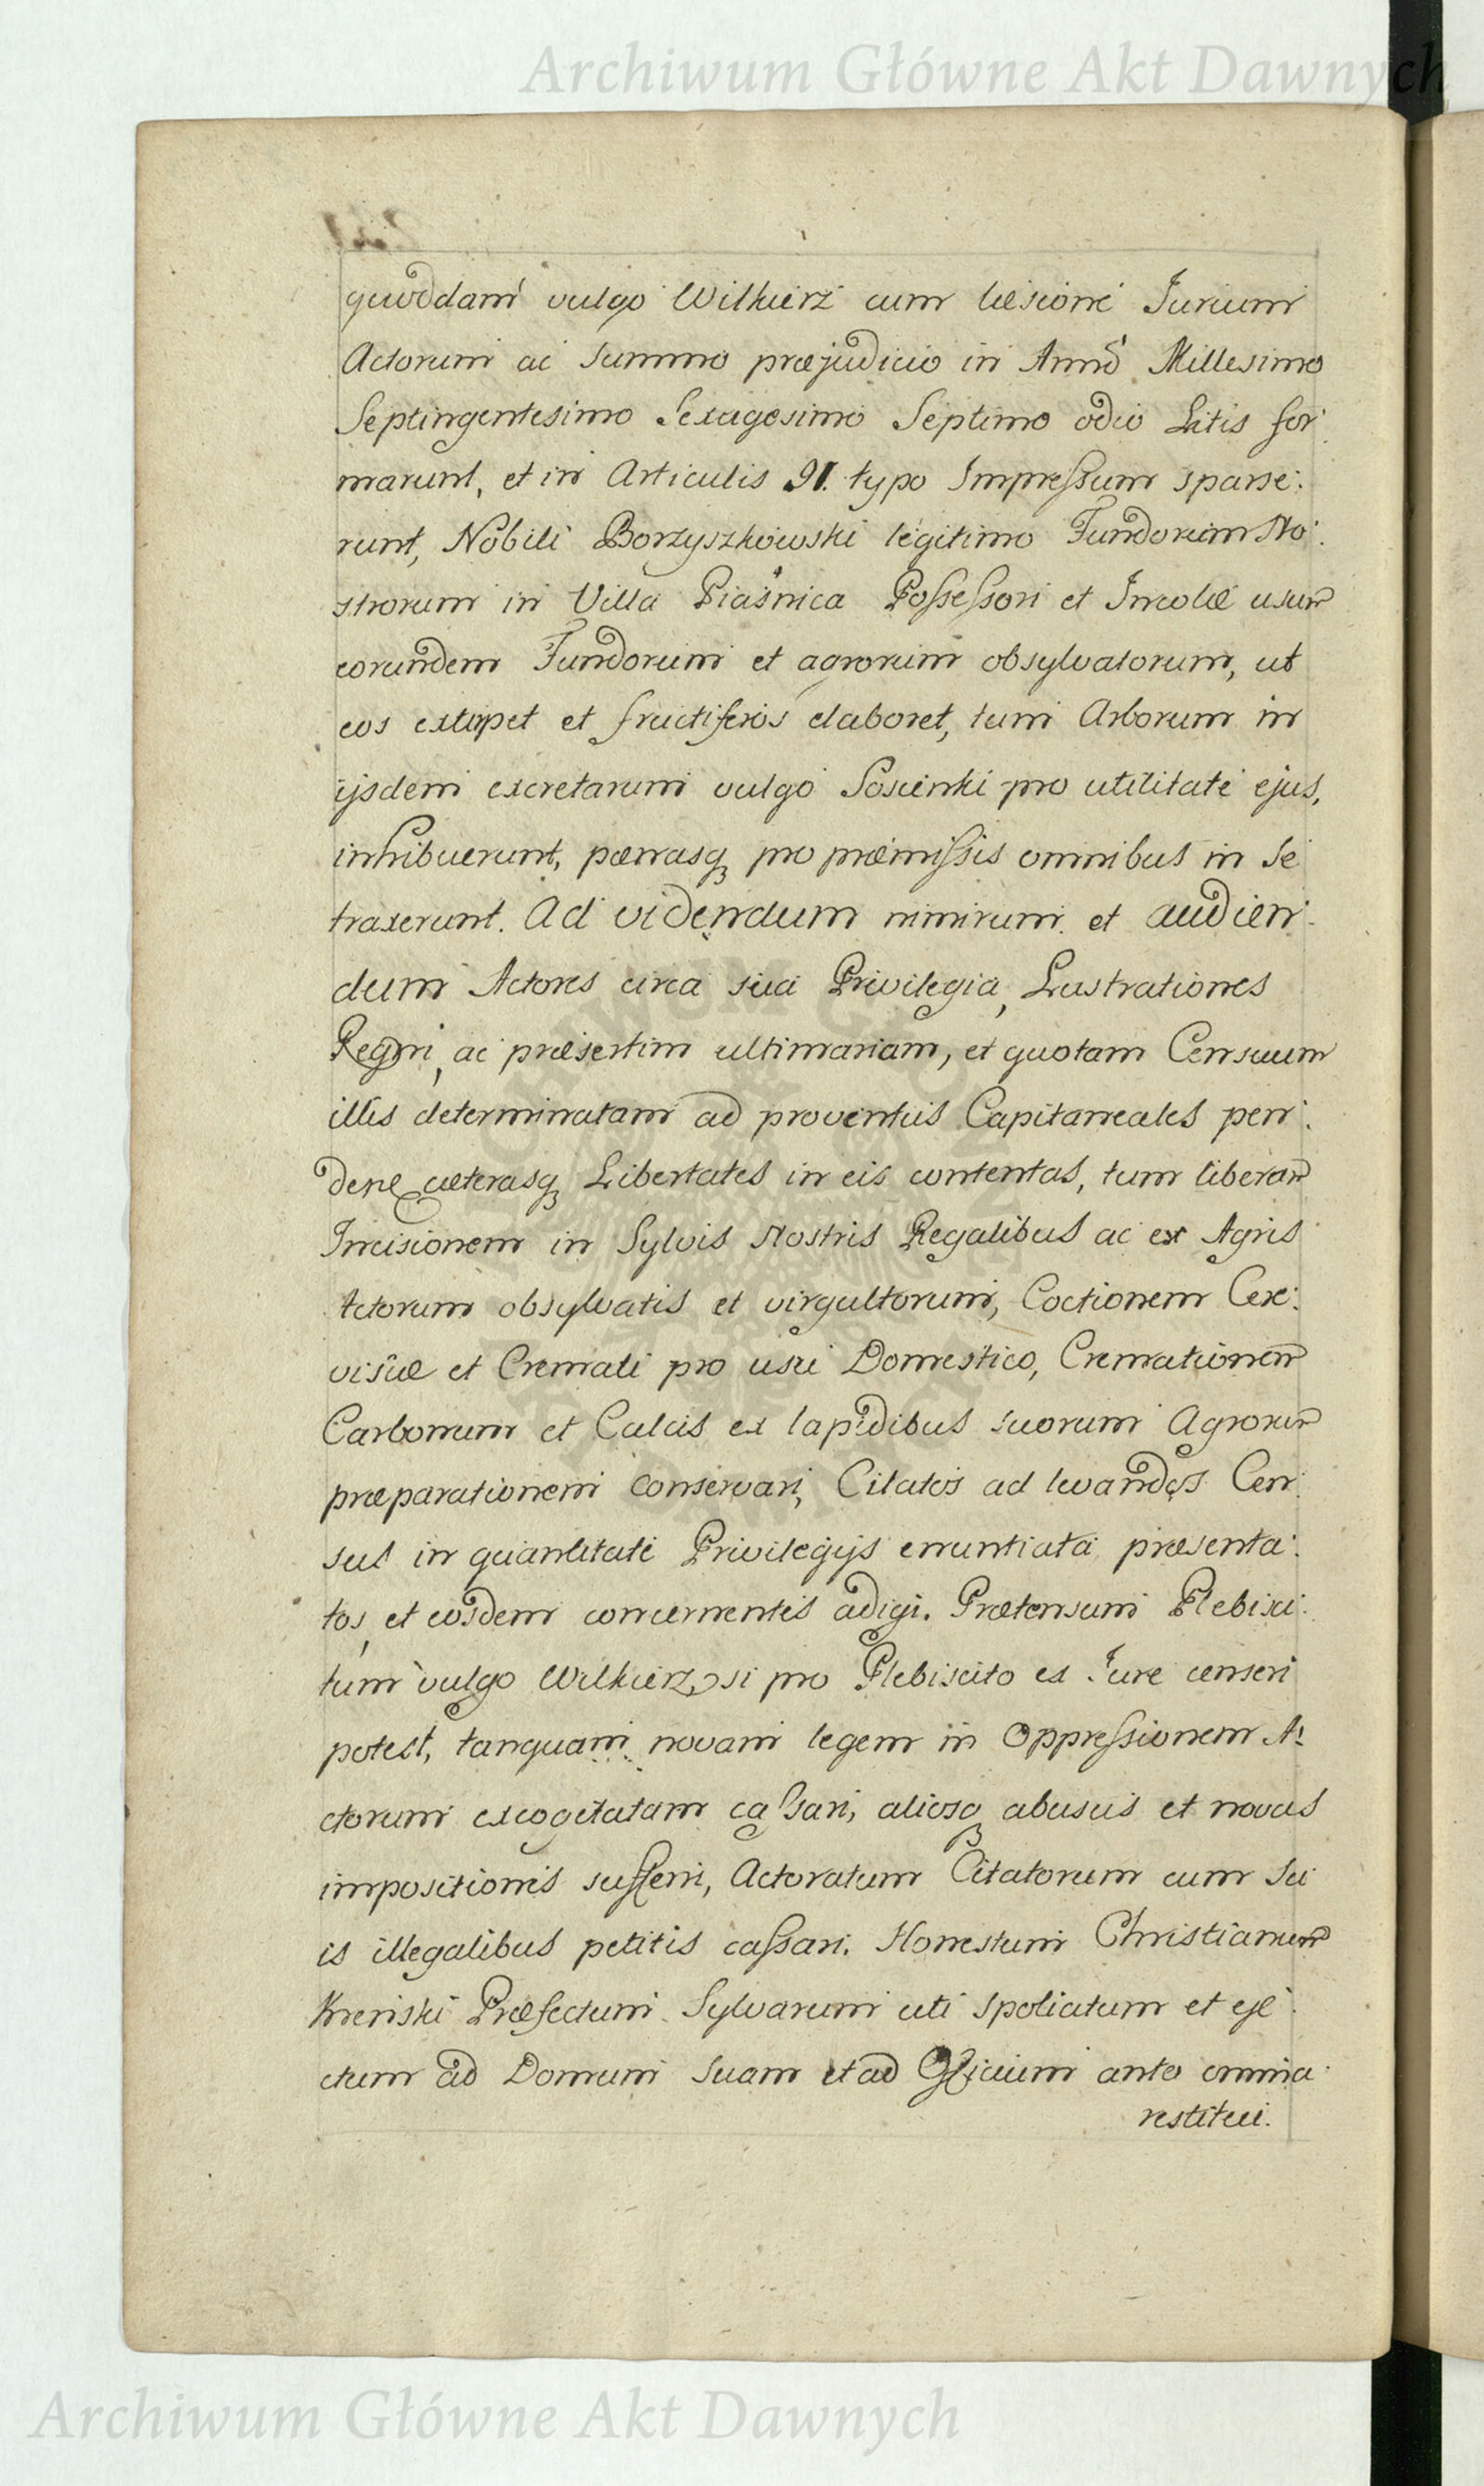 Archiwum Główne Akt Dawnych
quoddam vulgo Wilkierz cum læsione Jurium
Actorum ac summo præjudicio in Anno Millesimo
Septingentesimo Sexagesimo Septimo odio Litis for:
marunt, et in Articulis 91. typo Impressum sparse:
runt, Nobili Borzyszkowski legitimo Fundorum No:
strorum in Villa Piaśnica Possessori et Incolæ usum
eorundem Fundorum et agrorum obsylvatorum, ut
eos extirpet et fructiferos elaboret, tum Arborum in
ijsdem excretarum vulgo Sosienki pro utilitate ejus,
inhibuerunt, pœnasq pro præmissis omnibus in se
traxerunt. Ad videndum nimirum et audien:
dum Actores circa sua Privilegia, Lustrationes
Regni, ac præsertim ultimariam, et quotam Censuum
illis determinatam ad proventus Capitaneales pen:
dere cæterasq Libertates in eis contentas, tum liberam
Incisionem in Sylvis Nostris Regalibus ac ex Agris
Actorum obsylvatis et virgultorum, Coctionem Cere:
visiæ et Cremati pro usu Domestico, Cremationem
Carbonum et Calcis ex lapidibus suorum Agrorum
præparationem conservari, Citatos ad levandos Cen:
sus in quantitate Privilegijs enuntiata præsenta:
tos, et eosdem concernentes adigi. Prætensum Plebisci:
tum vulgo Wilkierz, si pro Plebiscito ex Jure censeri
potest, tanquam novam legem in Oppressionem A:
ctorum excogitatam cassari, aliosq abusus et novas
impositiones susferri, Actoratum Citatorum cum su
is illegalibus petitis cassari. Honestum Christianum
Kreński Præfectum Sylvarum uti spoliatum et eje:
ctum ad Domum suam et ad Officium ante omnia
restitui.
Archiwum Główne Akt Dawnych